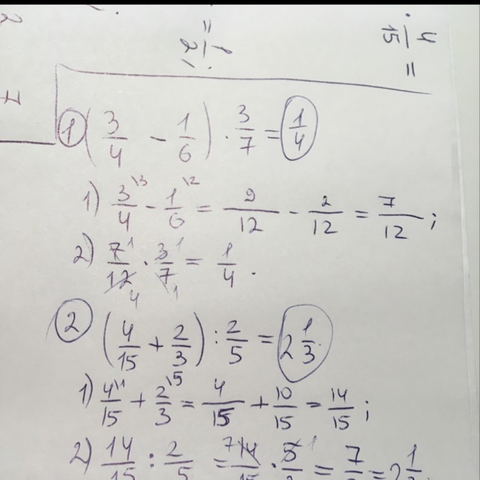 4/15 =
= 1/2;
2
7
① (3/4 − 1/6) · 3/7 = 1/4
1) 3/4 \3 − 1/6 \2 = 9/12 − 2/12 = 7/12;
2) 7/12 · 3/7 = 1/4.
② (4/15 + 2/3) : 2/5 = 2 1/3.
1) 4/15 \1 + 2/3 \5 = 4/15 + 10/15 = 14/15;
2) 14/15 : 2/5 = 14/15 · 5/2 = 7/3 = 2 1/3.